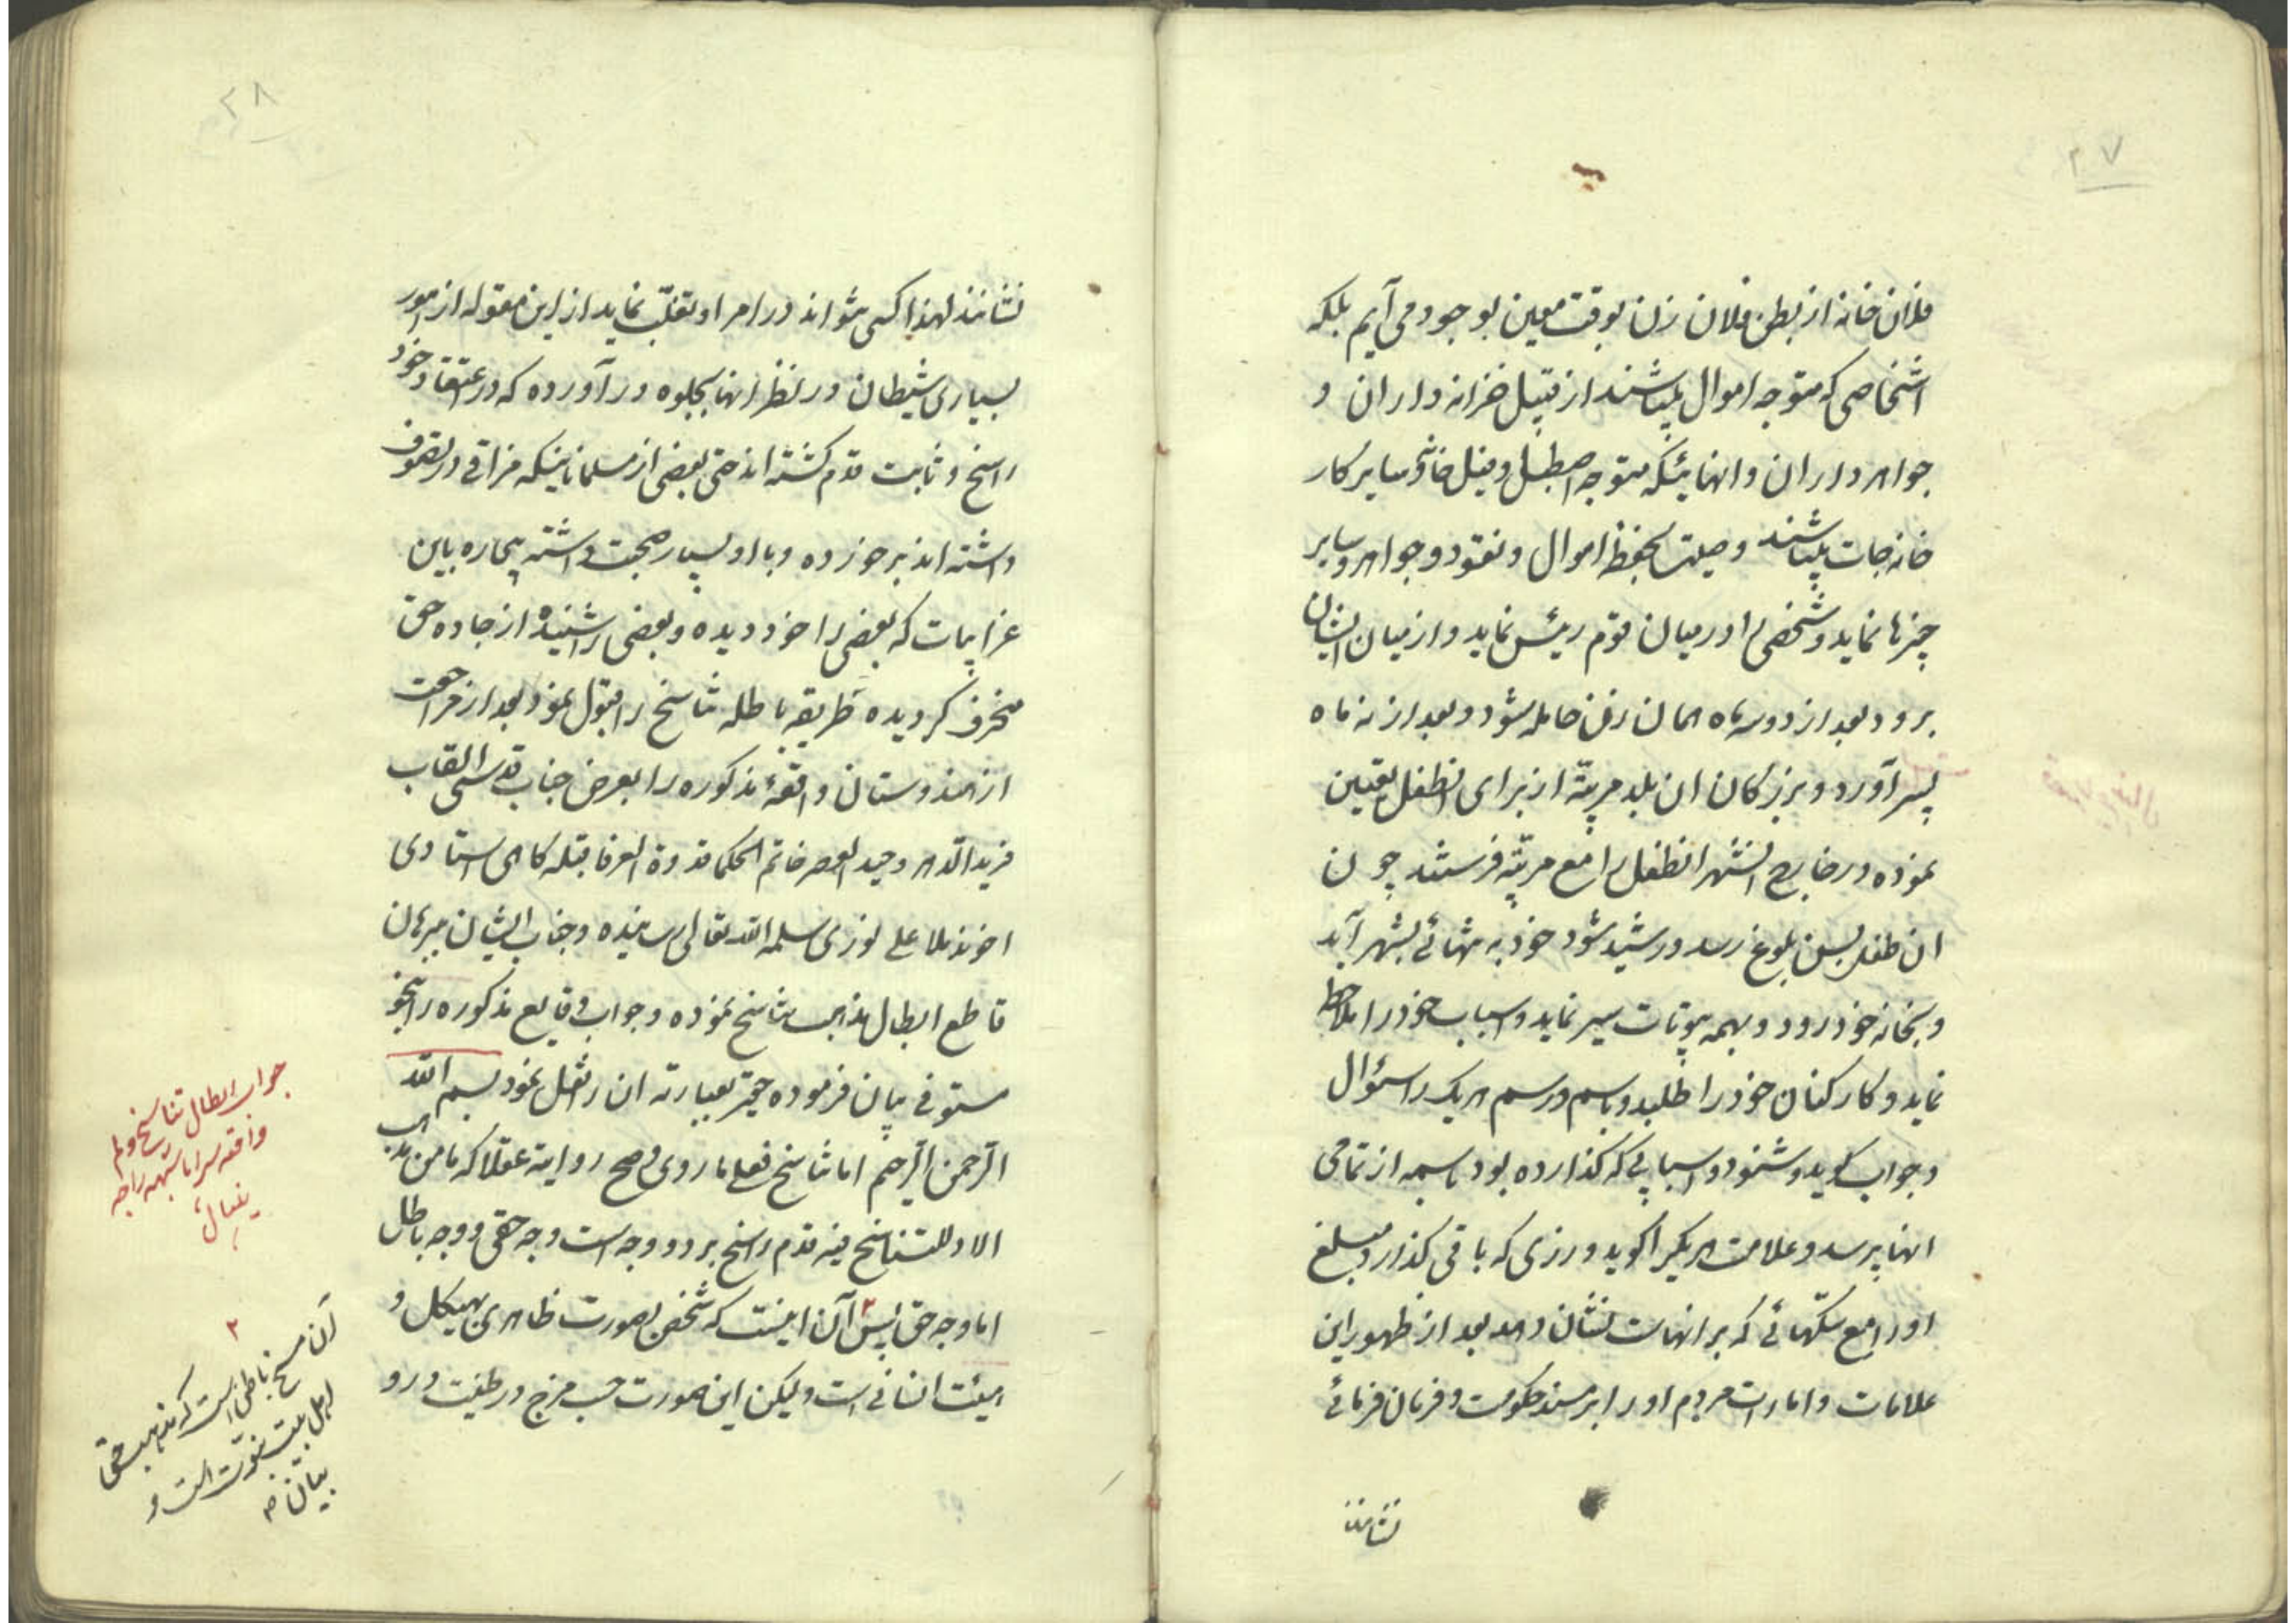 ۲۷
فلان خانه از بطن فلان زن بوقت معین بوجود می آیم بلکه
اشخاصی که متوجه اموال میباشند از قبیل خزانه داران و
جواهر داران و انهائیکه متوجه اصطبل و فیل خانه و سایر کار
خانه جات میباشند وصیت بحفظ اموال و نقود و جواهر و سایر
چیزها نماید و شخصی را در میان قوم رئیس نماید و از میان ایشان
برود بعد از دو سه ماه همان زن حامله شود و بعد از نه ماه
پسر آورد و بزرکان ان بلد مربیّه از برای انطفل تعیین
نموده در خارج انشهر انطفل را مع مربیّه فرستند چون
ان طفل بسن بلوغ رسد و رشید شود خود به تنهائی بشهر آید
و بخانه خود رود و بهمه بیوتات سیر نماید و اسباب خود را ملاحظه
نماید و کارکنان خود را طلبد و باسم و رسم هریک را سئوال
و جواب کوید و شنود و اسبابی که کذارده بود باسمه از تمامی
انها پرسد و علامت هریکرا کوید و زری که باقی کذارد مبلغ
اورا مع سکّهائی که بر انهاست نشان دهد بعد از ظهور این
علامات و امارات مردم او را بر مسند حکومت و فرمان فرمائی
نشانند
۲۸
نشانند لهذا کسی نتواند در امر او تقلّب نماید از این مقوله از امور
بسیاری شیطان در نظر انها بجلوه در آورده که در اعتقاد خود
راسخ و ثابت قدم کشته اند حتی بعضی از مسلمانانیکه مزاقی در تصوف
داشته اند برخورده و با او بسیار صحبت داشته بیچاره باین
غرایبات که بعضی را خود دیده و بعضی را شنیده از جاده حق
منحرف کردیده طریقه باطله تناسخ را قبول نمود بعد از مراجعت
از هندوستان واقعهٔ مذکوره را بعرض جناب قدسی القاب
فرید الدهر وحید العصر خاتم الحکما قدوة العرفا قبله کاهی استادی
اخوند ملا علی نوری سلمه الله تعالی رسانیده و جناب ایشان ببرهان
قاطع ابطال مذهب تناسخ نموده و جواب وقایع مذکوره را بنحو
مستوفی بیان فرموده حقیر بعبارته ان را نقل نمود بسم الله
الرّحمن الرّحیم اما تناسخ فعلی ما روی و صح روایته عقلا که ما من مذهب
الا و للتناسخ فیه قدم راسخ بر دو وجه است وجه حقی و وجه باطل
اما وجه حق پس ۲ آن اینست که شخص بصورت ظاهری بهیکل و
هیئت انسانی است ولیکن این صورت حسب مزج در طینت و رو
جواب ابطال تناسخ و لم
۲
آن مسخ باطنی است که مذهب حق
اهل بیت نبوّت است و
بیان م